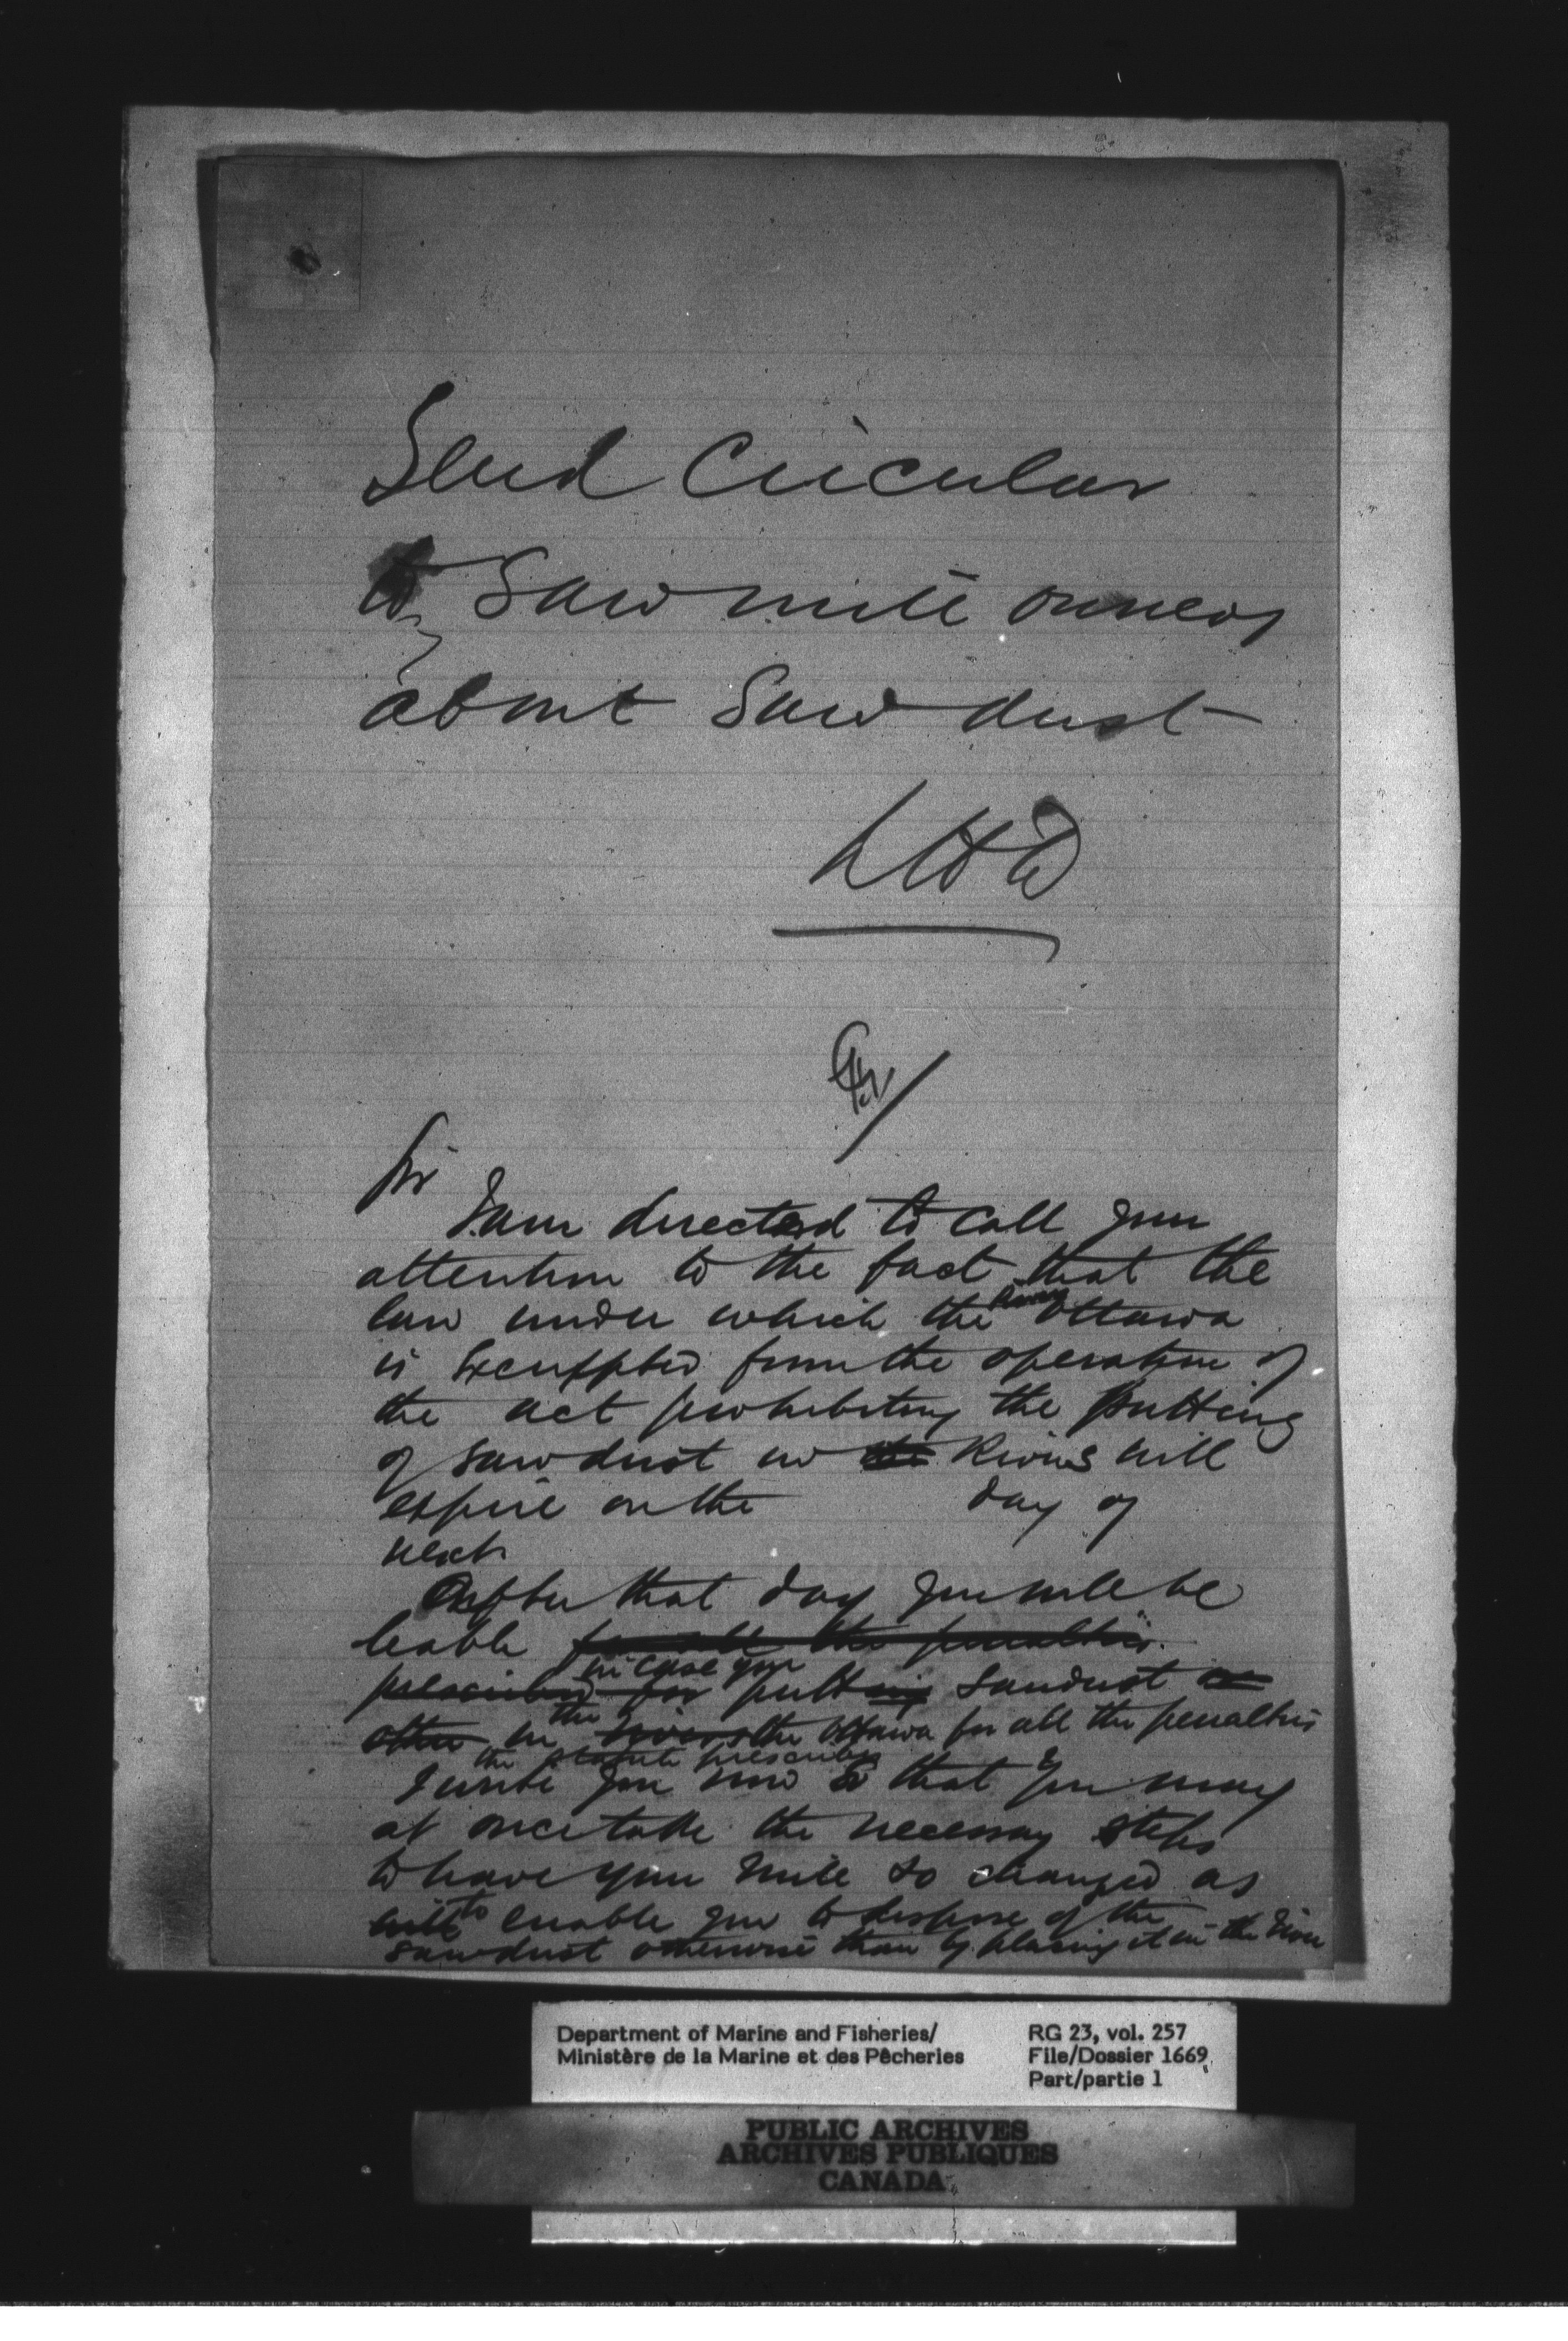 Send Circular
to Saw mill owners
about Saw dust
LHD
Sir
I am directed to call your
attention to the fact that the
law under which the River Ottawa
is Exempted from the operation of
the act prohibiting the putting
of sawdust in the Rivers will
expire on the day of
next
After that day you will be
leable for all the penalties
prescribed for in case you putting sawdust or
other in the rivers the Ottawa for all the penalties
the statute prescribes
I write you now so that you may
at once take the necessary steps
to have your mill so changed as
will to enable you to dispose of the
sawdust otherwise than by placing it in the River
Department of Marine and Fisheries/
Ministère de la Marine et des Pêcheries
RG 23, vol. 257
File/Dossier 1669
Part/partie 1
PUBLIC ARCHIVES
ARCHIVES PUBLIQUES
CANADA